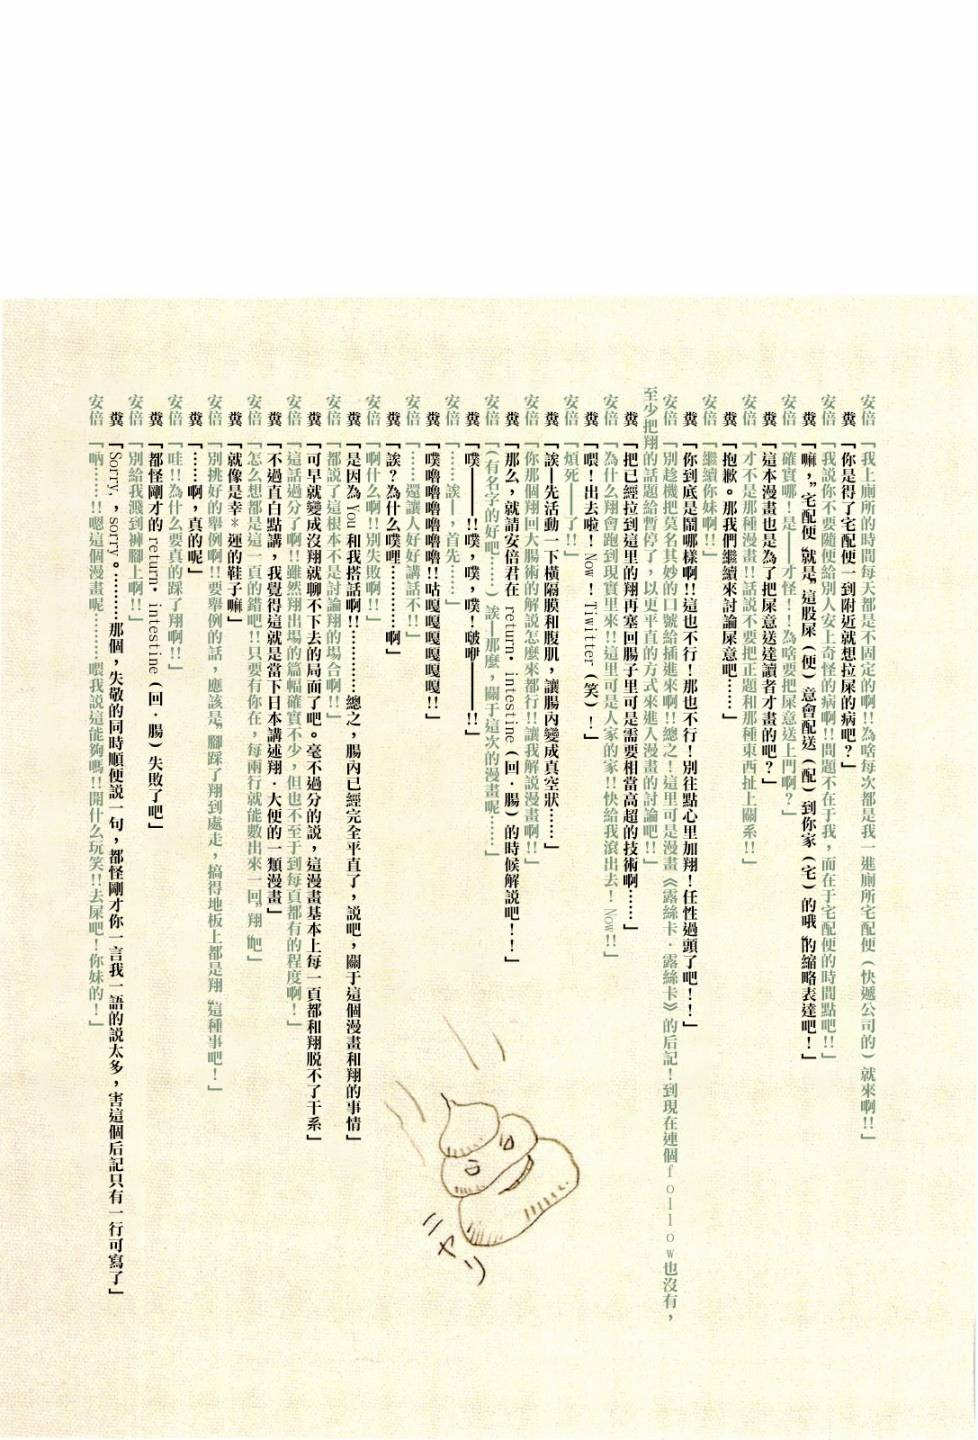 安倍「我上廁所的時間每天都是不固定的啊!!為啥每次都是我一進廁所宅配便（快遞公司的）就來啊!!」
糞「你是得了宅配便一到附近就想拉屎的病吧？」
安倍「我說你不要隨便給別人安上奇怪的病啊!!問題不在于我，而在于宅配便的時間點吧!!」
糞「嘛，”宅配便”就是”這股屎（便）意會配送（配）到你家（宅）的哦”的縮略表達吧！」
安倍「確實哪！是——才怪！！為啥要把屎意送上門啊？」
糞「這本漫畫也是為了把屎意送達讀者才畫的吧？」
安倍「才不是那種漫畫!!話説不要把正題和那種東西扯上關系!!」
糞「抱歉。那我們繼續來討論屎意吧……」
安倍「繼續你妹啊!!」
糞「你到底是鬧哪樣啊!!這也不行！那也不行！別往點心里加翔！任性過頭了吧！！」
安倍「別趁機把莫名其妙的口號給插進來啊!!總之！這里可是漫畫《露絲卡·露絲卡》的后記！到現在連個follow也沒有，
至少把翔的話題給暫停了，以更平直的方式來進入漫畫的討論吧!!」
糞「把已經拉到這里的翔再塞回腸子里可是需要相當高超的技術啊……」
安倍「為什么翔會跑到現實里來!!這里可是人家的家!!快給我滾出去！Now!!」
糞「喂！出去啦！Now！Tiwitter（笑）！」
安倍「煩死——了!!」
糞「誒—先活動一下橫隔膜和腹肌，讓腸內變成真空狀……」
安倍「你那個翔回大腸術的解説怎麼來都行!!讓我解説漫畫啊!!」
糞「那么，就請安倍君在 return·intestine（回·腸）的時候解説吧！！」
安倍「（有名字的好吧……）誒—那麼，關于這次的漫畫呢……」
糞「噗——!!噗，噗，噗！啵咿———!!」
安倍「……誒—，首先……」
糞「噗嚕嚕嚕嚕嚕嚕!!咕嘎嘎嘎嘎嘎!!」
安倍「……還讓人好好講話不!!」
糞「誒？為什么噗哩…………啊」
安倍「啊什么啊!!別失敗啊!!」
糞「是因為 You 和我搭話啊!!…………總之，腸內已經完全平直了，説吧，關于這個漫畫和翔的事情」
安倍「都説了這根本不是討論翔的場合啊!!」
糞「可早就變成沒翔就聊不下去的局面了吧。毫不過分的説，這漫畫基本上每一頁都和翔脱不了干系」
安倍「這話過分了啊!!雖然翔出場的篇幅確實不少，但也不至于到每頁都有的程度啊！」
糞「不過直白點講，我覺得這就是當下日本講述翔·大便的一類漫畫」
安倍「怎么想都是這一頁的錯吧!!只要有你在，每兩行就能數出來一回”翔”吧」
糞「就像是幸＊運的鞋子嘛」
安倍「別挑好的舉例啊!!要舉例的話，應該是”腳踩了翔到處走，搞得地板上都是翔”這種事吧！」
糞「……啊，真的呢」
安倍「哇!!為什么要真的踩了翔啊!!」
糞「都怪剛才的 return·intestine（回·腸）失敗了吧」
安倍「別給我濺到褲腳上啊!!」
糞「Sorry，，sorry。…………那個，失敬的同時順便説一句，都怪剛才你一言我一語的説太多，害這個后記只有一行可寫了」
安倍「吶……!!嗯這個漫畫呢………喂我説這能夠嗎!!開什么玩笑!!去屎吧！你妹的！」
ニヤリ